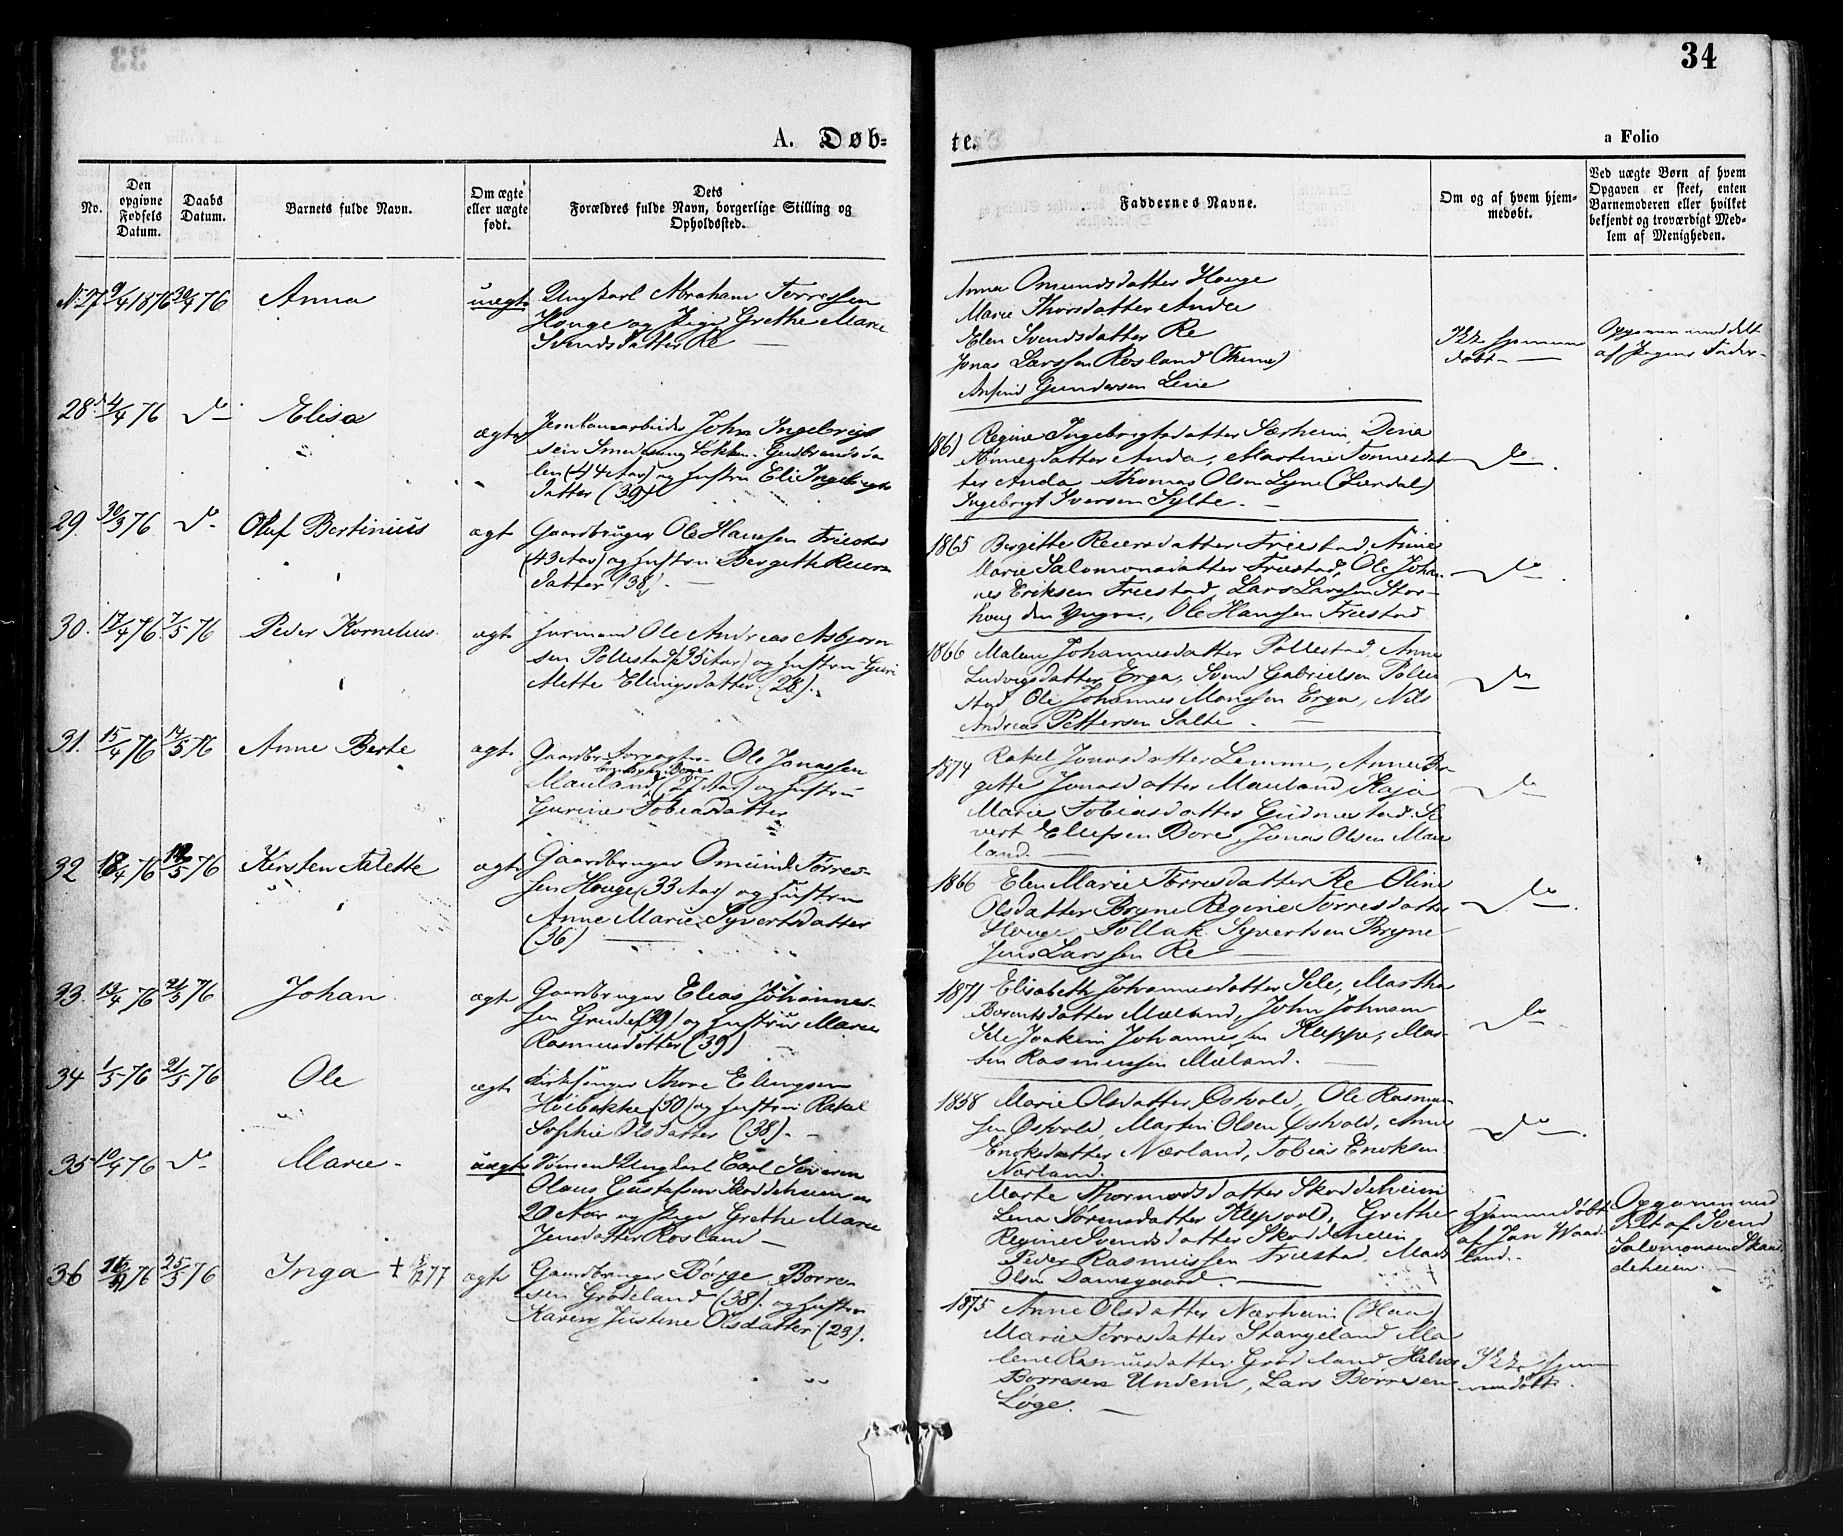 34
A. Døb-
te.
a Folio
No.
Den
opgivne
Fødsels
Datum.
Daabs
Datum.
Barnets fulde Navn.
Om ægte
eller uægte
født.
Dets
Forældres fulde Navn, borgerlige Stilling og
Opholdssted.
Faddernes Navne.
Om og af hvem hjem-
medøbt.
Ved uægte Børn af hvem
Opgaven er skeet, enten
Barnemoderen eller hvilket
bekjendt og troværdigt Med-
lem af Menigheden.
N. 27 9/4 1876 30/4 76 Anna uægte
Ungkarl Abraham Torressen
Houge og Pige Grethe Marie
Svendsdatter Re
Anna Omundsdatter Houge
Marie Thorsdatter Anda
Elen Svendsdatter Re
Jonas Larssen Rosland (Thime)
Gundersen Line
Ikke hjemme
døbt
Opgaven meddelt
af Pigens Fader
28. 4/4 76 do Elisa ægte
Jernbanearbeider John Ingebrigt
sen Løkken. Gudbrandsda
len (44 Aar) og Hustru Eli Ingebrigts
datter (39)
1861 Regine Ingebrigtsdatter Særheim, Dina
datter Anda, Martine Tønnesdat
ter Anda Thomas Olsen Lyne (Lærdal)
Ingebrigt Iversen Sylte.
do
29. 30/3 76 do Oluf Bertinius ægte
Gaardbruger Ole Hanssen Friestad
(43 Aar) og Hustru Bergeth Reiers
datter (38)
1865 Bergitte Reiersdatter Friestad, Anne
Marie Salomonsdatter Friestad, Ole Johan
nes Eriksen Friestad, Lars Larssen Stor-
houg den Yngre, Ole Hanssen Friestad
do
30. 17/4 76 7/5 76 Peder Kornelius ægte
Husmand Ole Andreas Asbjørn
sen Pollestad (35 Aar) og Hustru Guri
Alette Ellingsdatter (28).
1866 Malene Johannesdatter Pollestad, Anne
Ludvigsdatter Erga, Svend Gabrielsen Polle
stad, Ole Johannes Monssen Erga, Nils
Andreas Pettersen Salte.
do
31. 15/4 76 14/5 76 Anne Berte ægte
Gaardbr. Ole Jonassen
Mauland (27 Aar) og Hustru
Gurine Tobiasdatter
1874 Rakel Jonasdatter Lemme, Anne Ber
gette Jonasdatter Mauland Kaja
Marie Tobiasdatter Gudmestad Si
vert Ellefsen Bore, Jonas Olsen Mau
land.
do
32 18/4 76 /5 76 Kirsten Talette ægte
Gaardbruger Omund Tørres-
sen Houge (33 Aar) og Hustru
Anne Marie Syvertsdatter
(36)
1866 Elen Marie Tørresdatter Re Oline
Olsdatter Bryne Regine Tørresdatter
Houge Tollak Syvertsen Bryne
Jens Larssen Re
do
33. 13/4 76 21/5 76 Johan ægte
Gaardbruger Elias Johannes-
sen Grude (39) og Hustru Marie
Rasmusdatter (39)
1871 Elisabeth Johannesdatter Sele, Martha
Berentsdatter Mæland, John Johnsen
Sele Joakim Johannessen Kleppe, Mor-
ten Rasmussen Mæland.
do
34 1/5 76 21/5 76 Ole ægte
Kirkesanger Thore Elingsen
Høibakke (50) og Hustru Rakel
Sophie Olsdatter (38).
1858 Marie Olsdatter Østvold, Ole Rasmus-
sen Østvold, Martin Olsen Østvold, Anne
Enoksdatter Nærland, Tobias Enoksen
Nærland.
do
35 10/4 76 do Marie uægte
Sømand Ungkarl Carl Severin
Olaus Gustafsen Skoddeheien
20 Aar og Pige Grethe Marie
Jensdatter Rosland
Marte Thormodsdatter Skoddeheien
Lena Sørensdatter Klepvold, Grethe
Regine Svendsdatter Skoddeheien
Peder Rasmussen Friestad, Mads
Olsen Damsgaard.
Hjemmedøbt
af Jan Waad
land.
Opgaven med
delt af Svend
Salomonsen Skad
deheien.
36 16/4 76 25/5 76 Inga † 77 ægte
Gaardbruger Børge Børre-
sen Grødeland (38). og Hustru
Karen Justine Olsdatter (23).
1875 Anne Olsdatter Nærheim (Haa)
Marie Tørresdatter Stangeland Ma
lene Rasmusdatter Grødeland, Halvor
Børresen Undem, Lars Børresen
Løge.
Ikke hjem
medøbt.